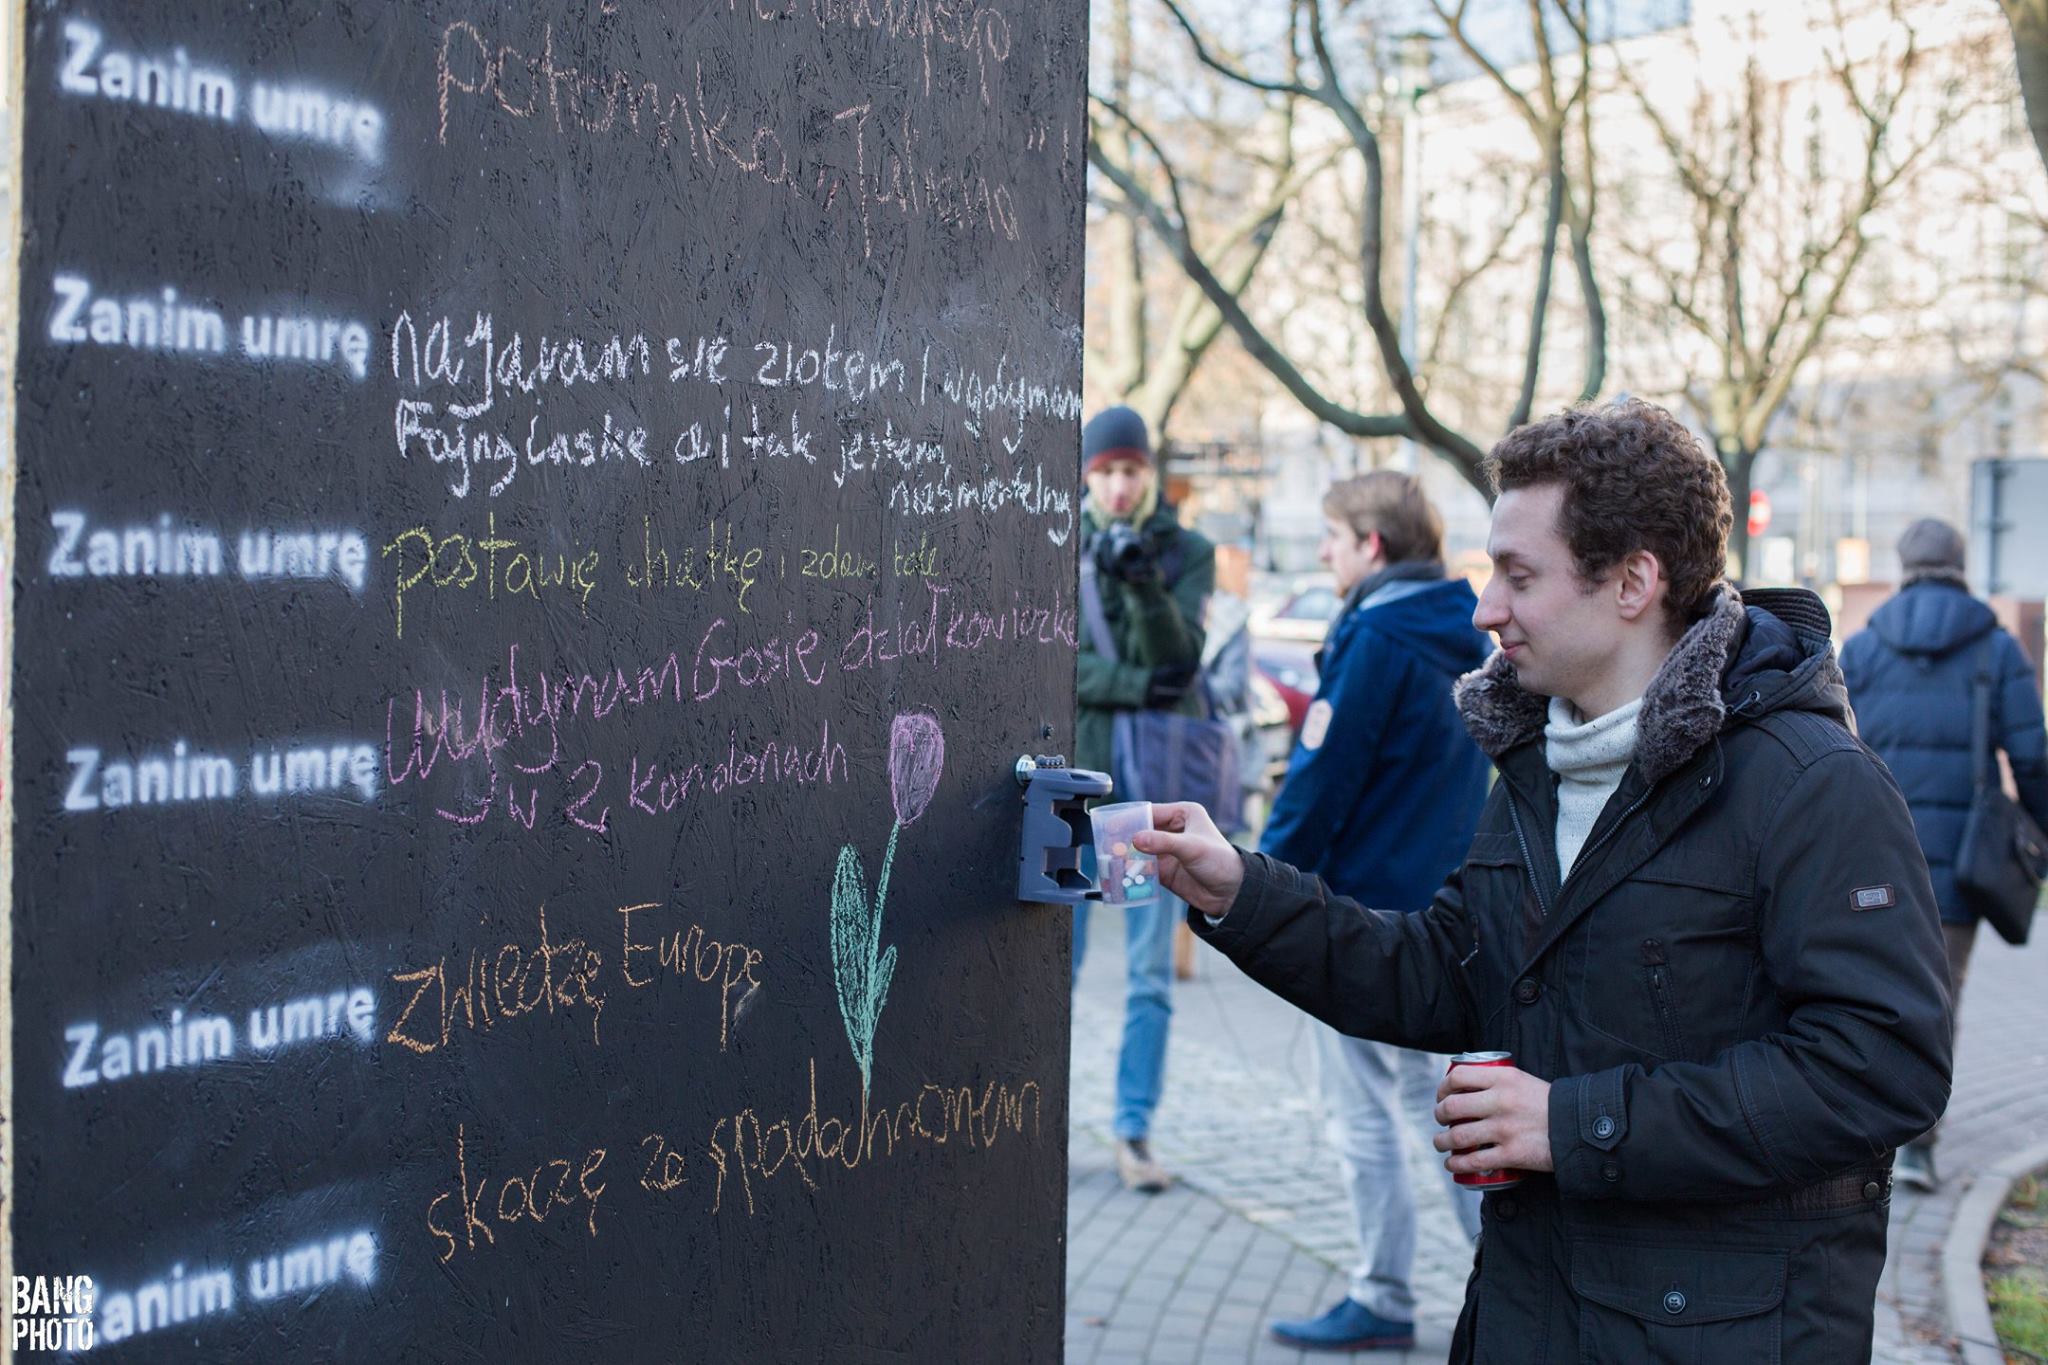 Zanim umrę
potomka "Juliana"
Zanim umrę
najaram się ziołem i wydymam
Fajną Laskę a i tak jestem
nieśmiertelny
Zanim umrę
postawię chatkę i
Zanim umrę
wydymam Gosię działkowiczkę
w 2 kondonach
Zanim umrę
zwiedzę Europę
Zanim umrę
skoczę ze spadochronem
BANG
PHOTO